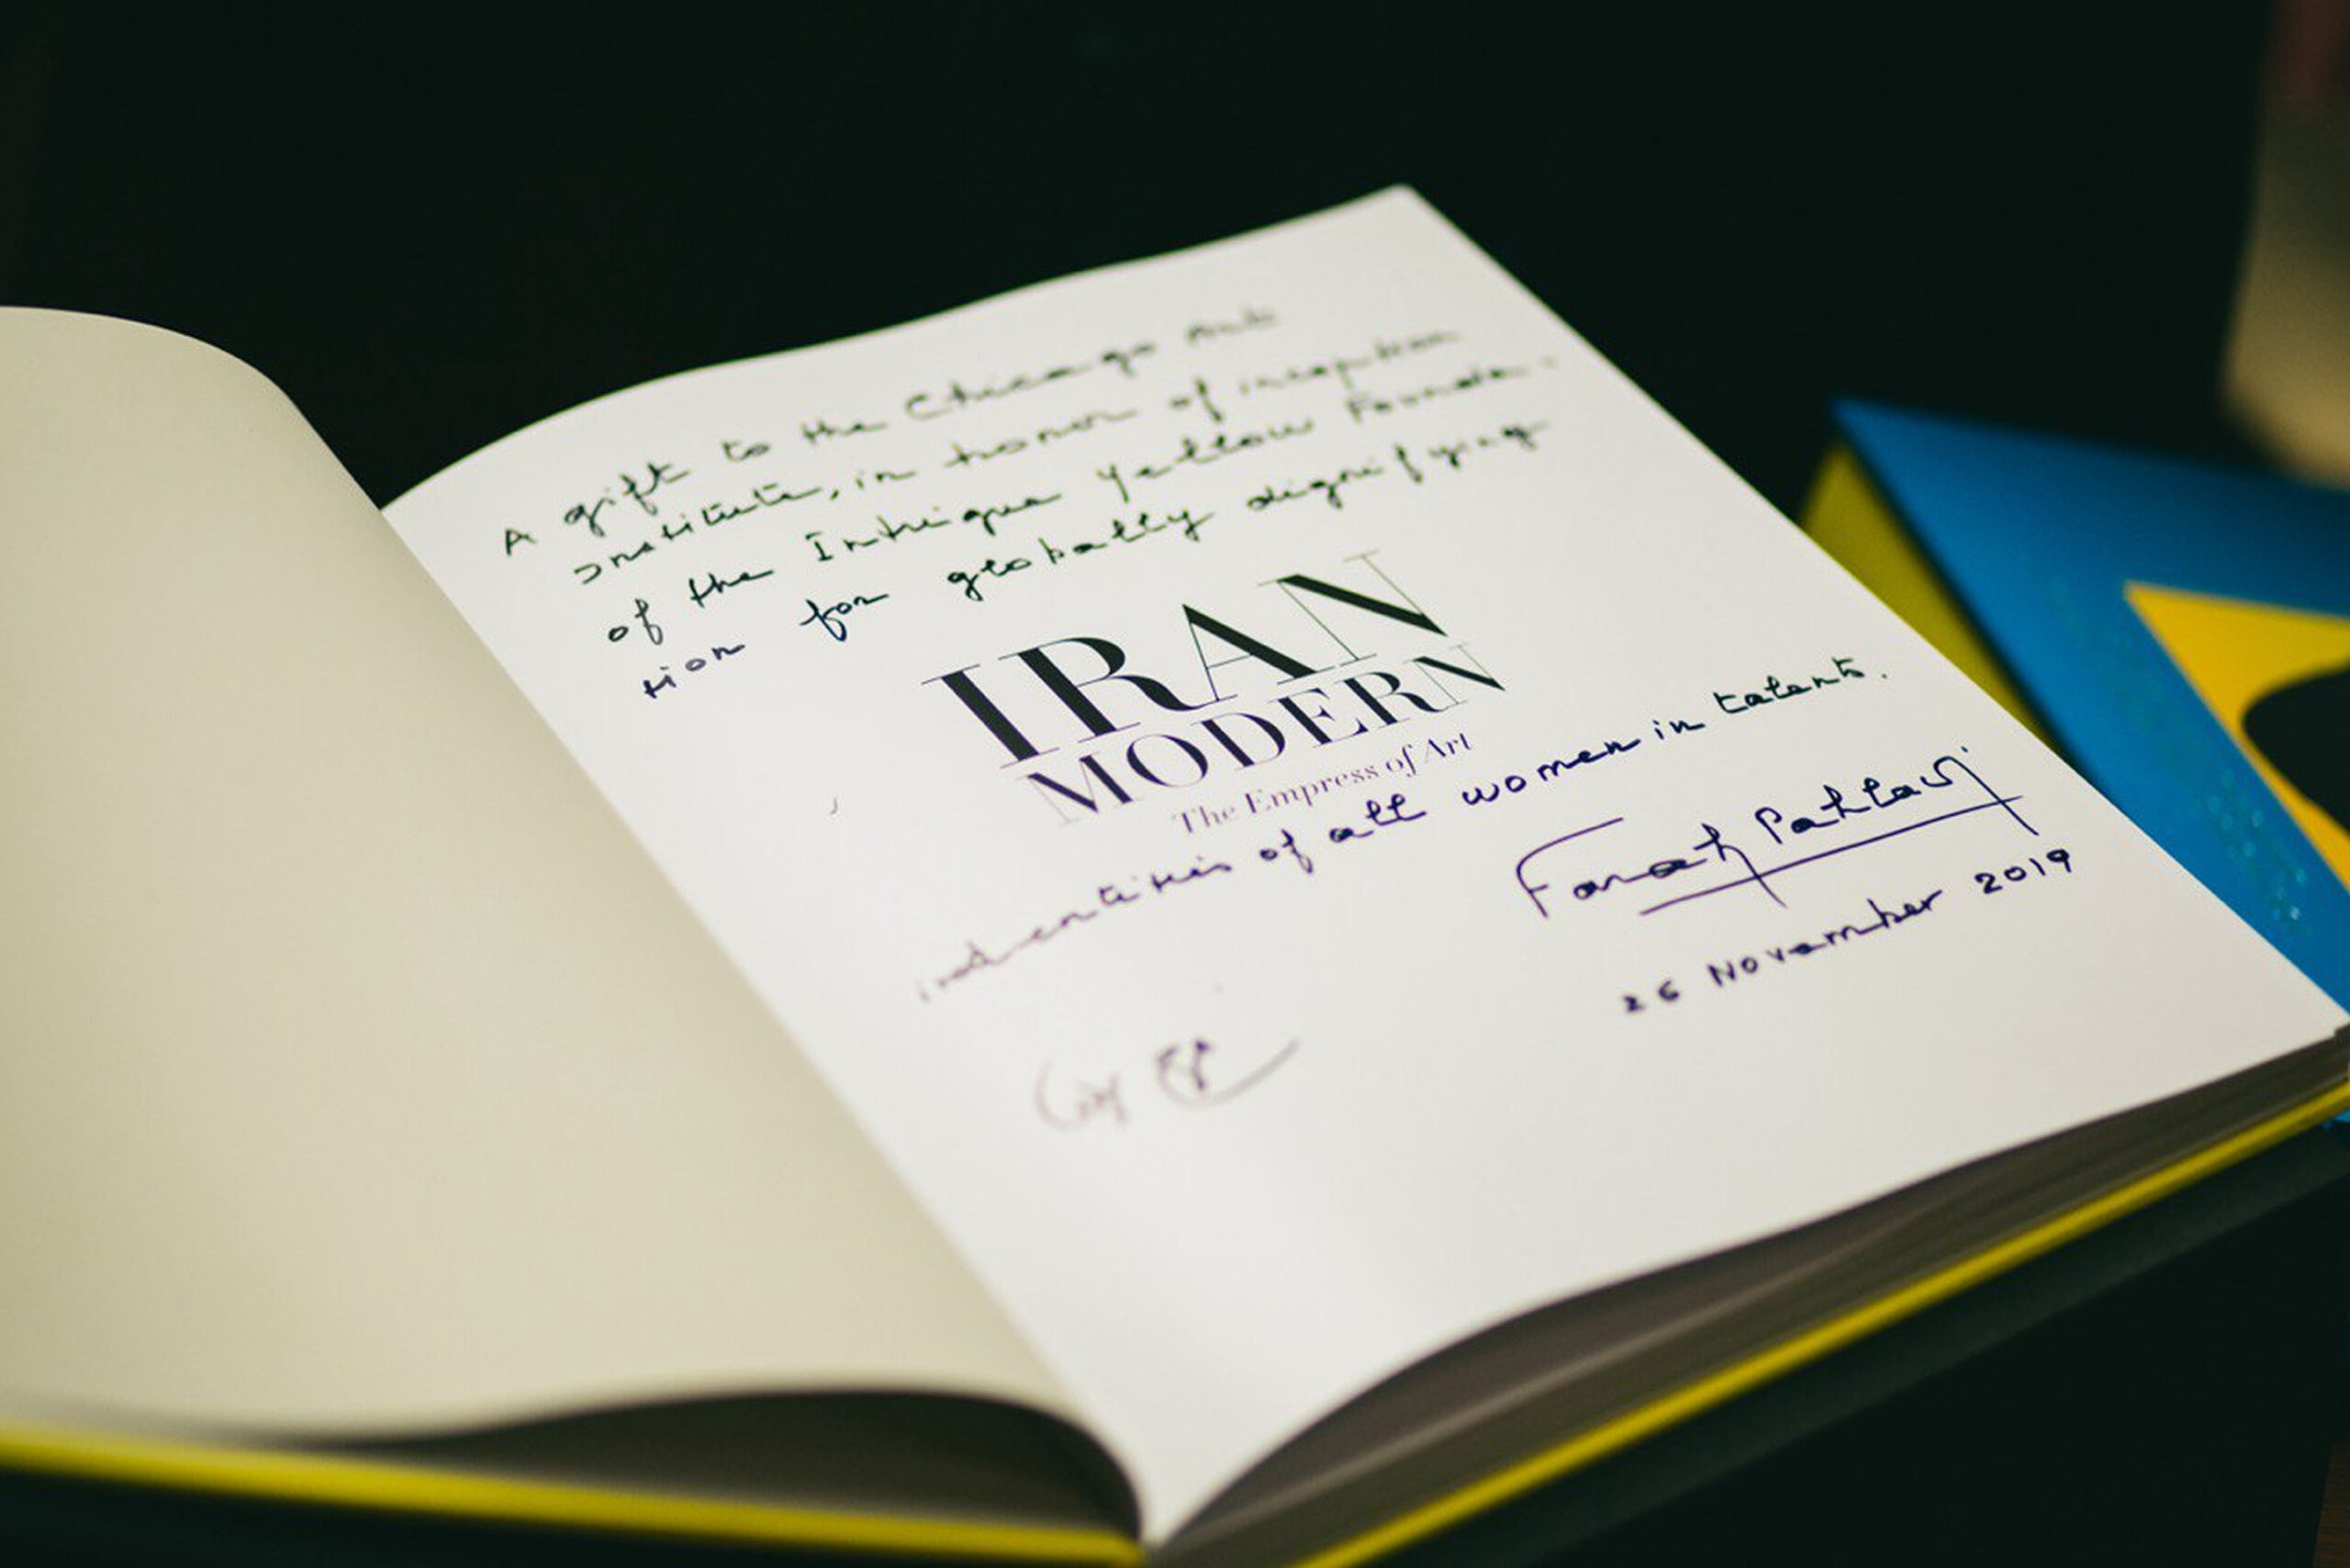 A gift to the Chicago Art
Institute, in honor of inception
of the Intrigue Yellow Founda-
tion for globally dignifying
IRAN
MODERN
The Empress of Art
identities of all women in talents.
Farah Pahlavi
26 November 2019